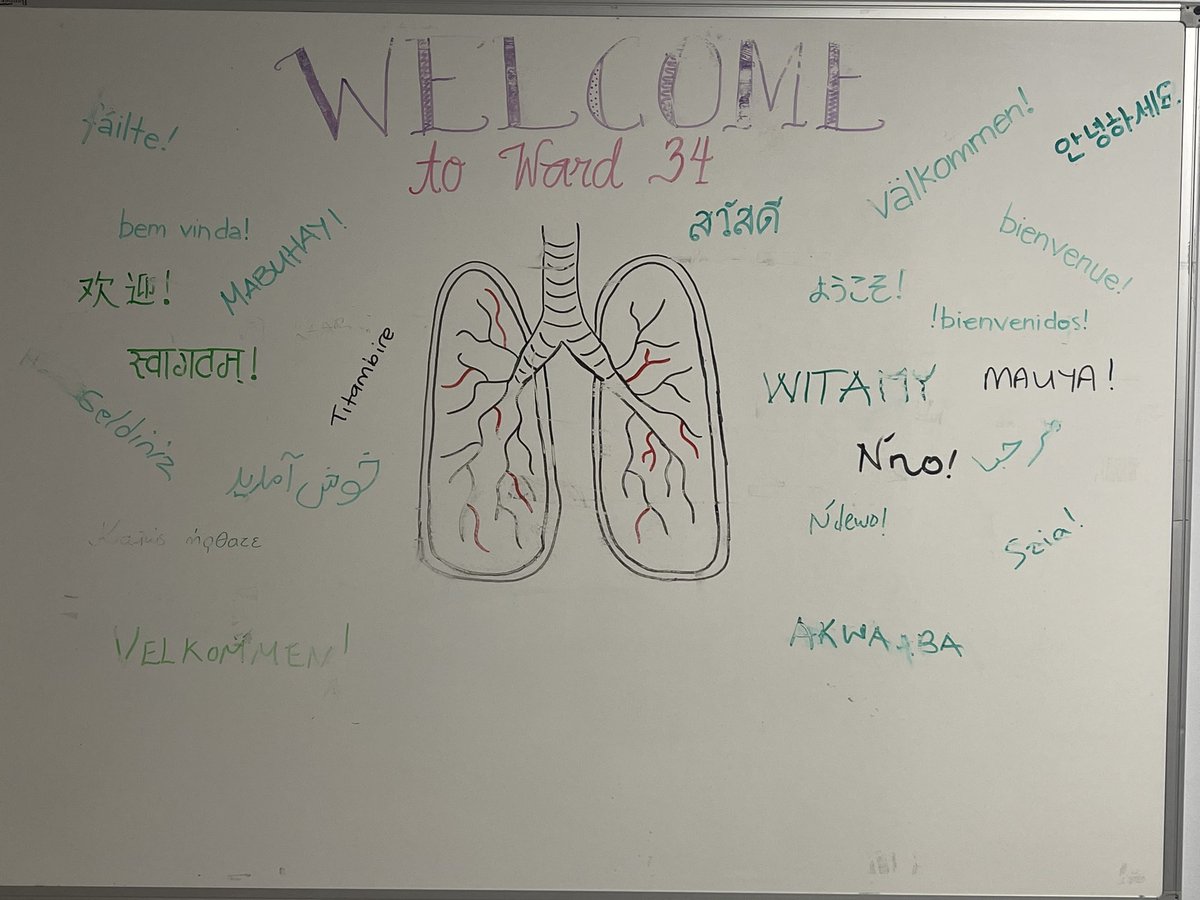 WELCOME
to Ward 34
fáilte!
välkommen!
안녕하세요.
bem vinda!
MABUHAY!
สวัสดี
bienvenue!
欢迎!
ようこそ!
!bienvenidos!
स्वागतम्!
Titambire
WITAMY
MAUYA!
Geldiniz
خوش آمدید
Nno!
Ndewo!
Szia!
VELKOMMEN!
AKWAABA